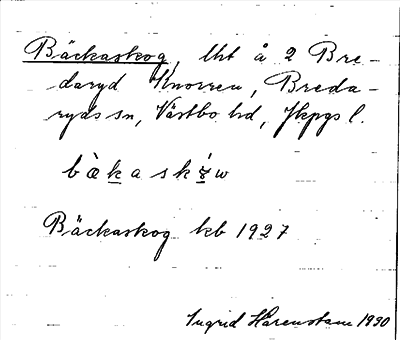 Bäckaskog, lht å 2 Bre-
daryd Knorren, Breda-
ryds sn, Västbo hd, Jkpgs l.
Bäckaskog kb 1927
Ingrid Härenstam 1930